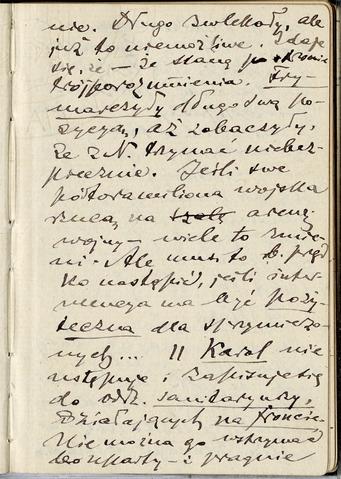 nie. Długo zwlekały, ale
już to niemożliwe. Zdaje
się, że — że staną po stronie
trójporozumienia. Fry-
marczyły długo swą po-
zycyą, aż zobaczyły,
że z N. trzymać niebez-
piecznie. Jeśli swe
półtoramiliona wojska
rzucą na szalę arenę
wojny — wiele to zmie-
ni. Ale musi to b. pręd
ko nastąpić, jeśli inter-
wencya ma być poży-
teczna dla sprzymierzo-
nych... || Karol nie
ustępuje i zapisuje się
do oddz. sanitarnych,
działających na froncie.
Nie można go wstrzymać
bo uparty — i pragnie